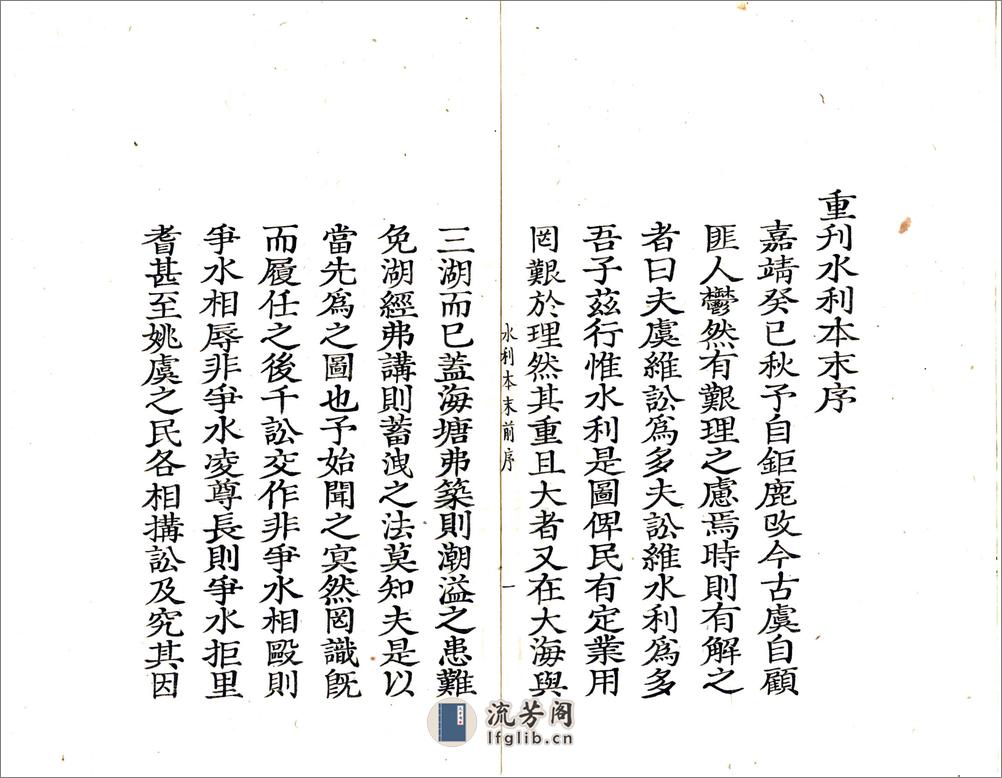 重刋水利本末序
嘉靖癸巳秋予自鉅鹿改今古虞自顧
匪人鬱然有艱理之慮焉時則有解之
者曰夫虞維訟爲多夫訟維水利爲多
吾子茲行惟水利是圖俾民有定業用
罔艱於理然其重且大者又在大海與
水利本末前序
一
三湖而已蓋海塘弗築則潮溢之患難
免湖經弗講則蓄洩之法莫知夫是以
當先爲之圖也予始聞之冥然罔識旣
而履任之後千訟交作非爭水相毆則
爭水相辱非爭水凌尊長則爭水拒里
耆甚至姚虞之民各相搆訟及究其因
流芳阁
lfglib.cn